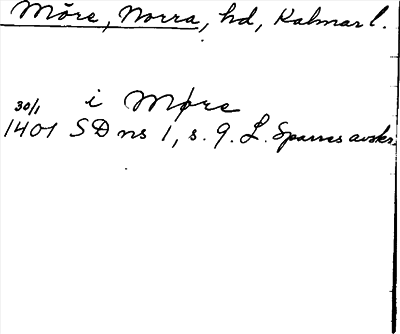 Möre, Norra, hd, Kalmar l.
i Møre
30/1
1401 SD ns 1, s. 9. L. Sparres avskr.